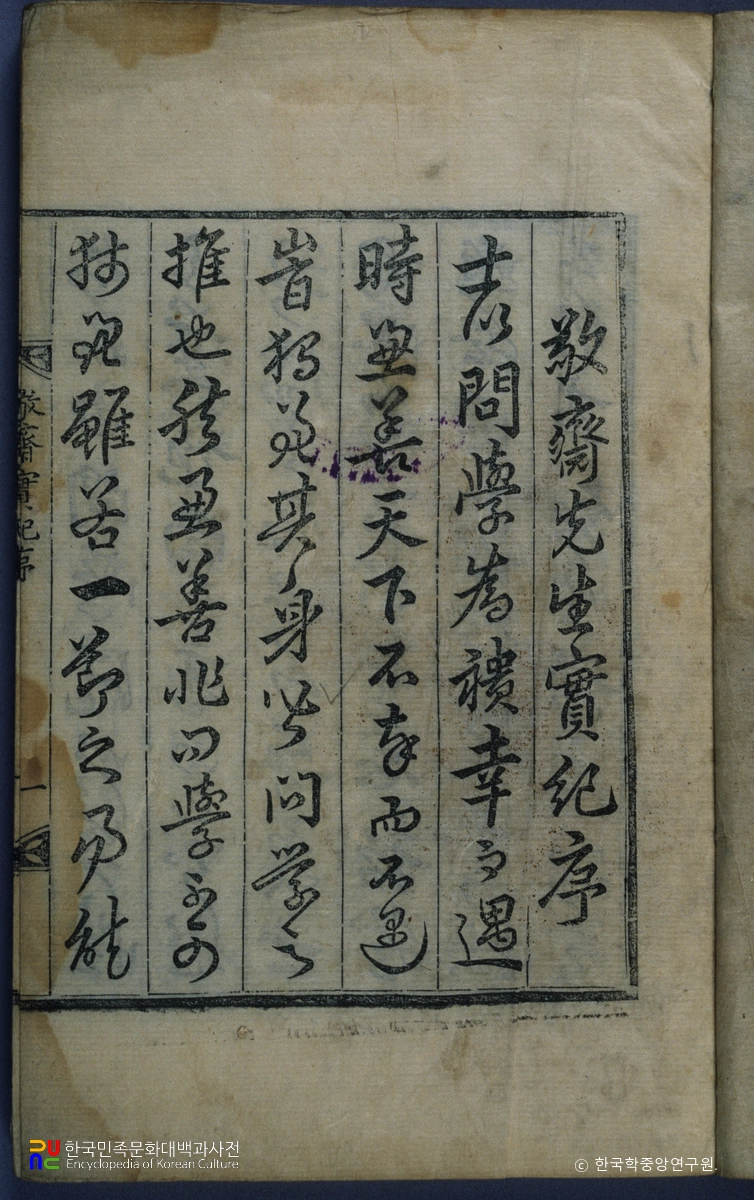 敬齋先生實紀序
士以問學為積幸而遇
時兼善天下不幸而不遇
峕獨善其身皆問學之
推也然兼善非問學不可
獨善雖若一節之易能
敬齋實紀序
一
한국민족문화대백과사전
Encyclopedia of Korean Culture
© 한국학중앙연구원.